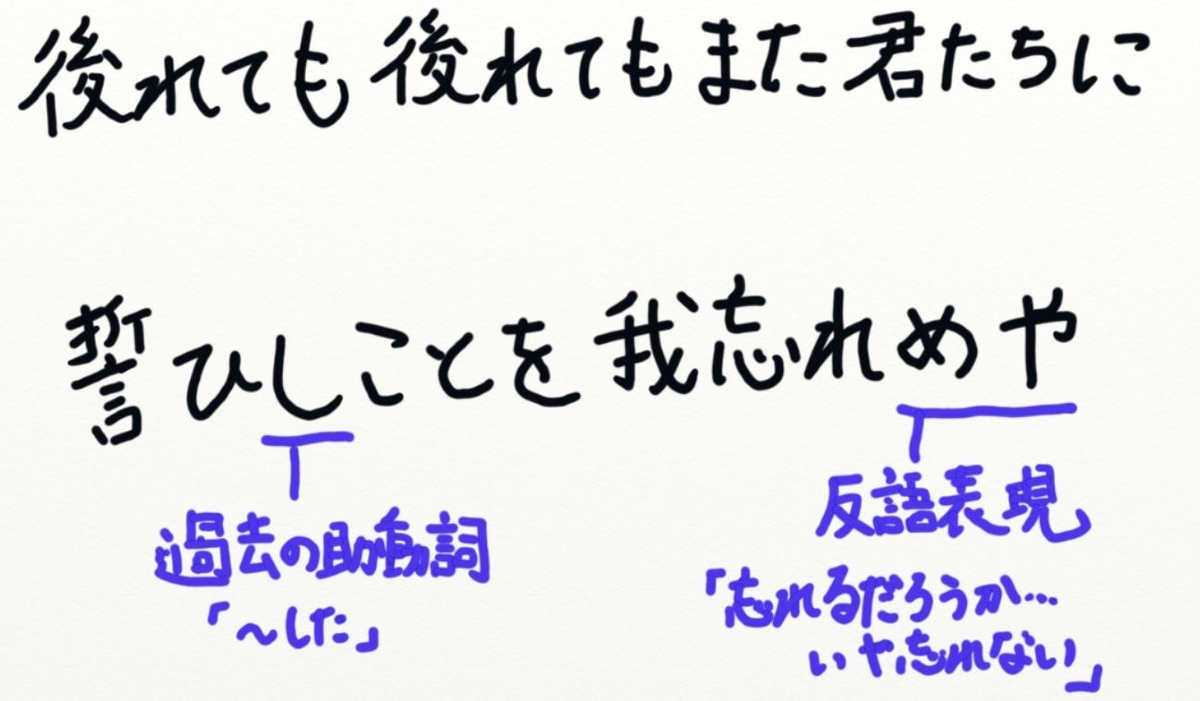 後れても後れてもまた君たちに
誓ひしことを我忘れめや
過去の助動詞
「～した」
反語表現
「忘れるだろうか…
いや忘れない」